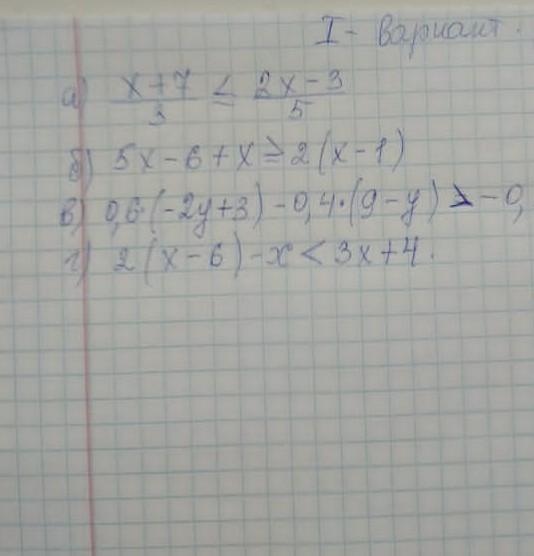 I - Вариант.
а) (x+7)/3 ≤ (2x-3)/5
б) 5x-6+x ≥ 2(x-1)
в) 0,6·(-2y+3)-0,4·(9-y) > -0,
г) 2(x-6)-x < 3x+4.